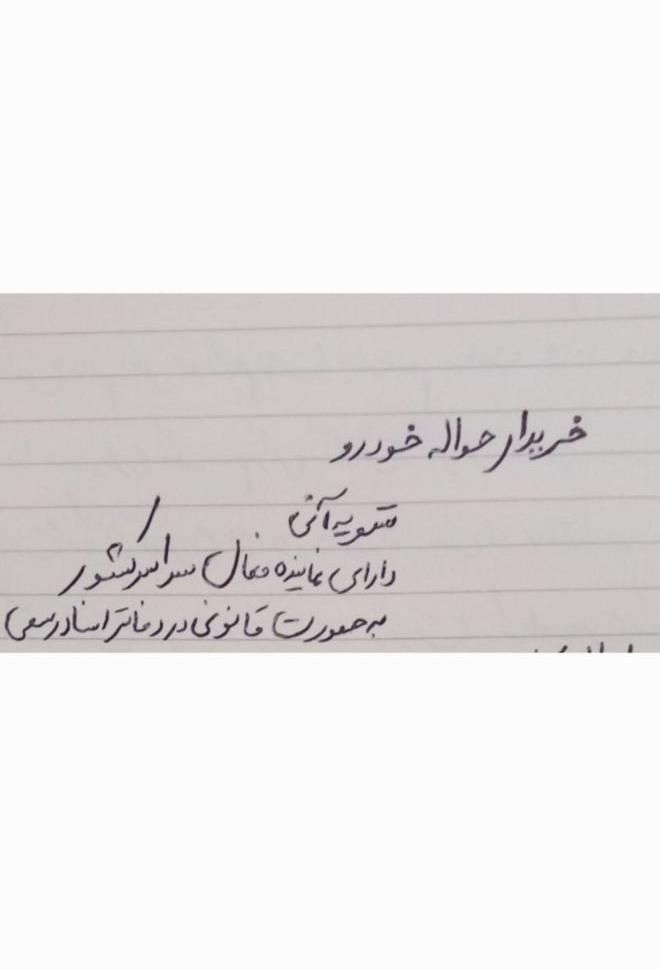 خریدار حواله خودرو
تسویه آنی
دارای نماینده فعال سراسر کشور
به صورت قانونی در دفاتر اسناد رسمی